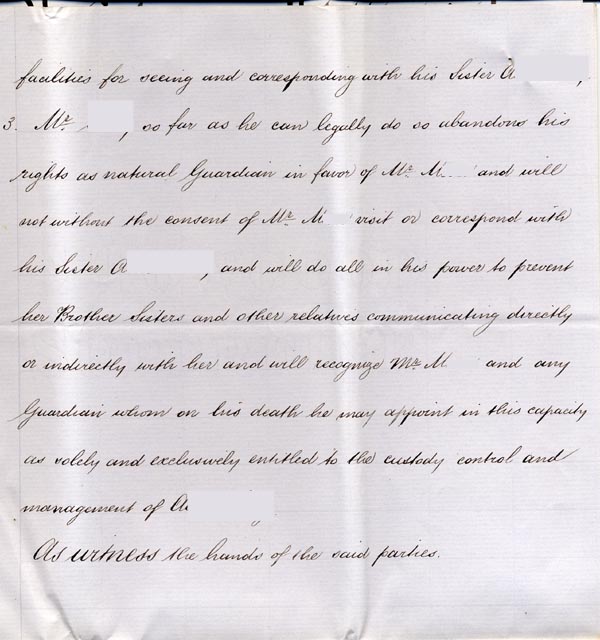 facilities for seeing and corresponding with his Sister A ,
3. Mr. , so far as he can legally do so abandons his
rights as natural Guardian in favor of Mr. M and will
not without the consent of Mr. M visit or correspond with
his Sister A , and will do all in his power to prevent
her Brother Sisters and other relatives communicating directly
or indirectly with her and will recognize Mr. M and any
Guardian whom on his death he may appoint in this capacity
as solely and exclusively entitled to the custody control and
management of A
As witness the hands of the said parties.